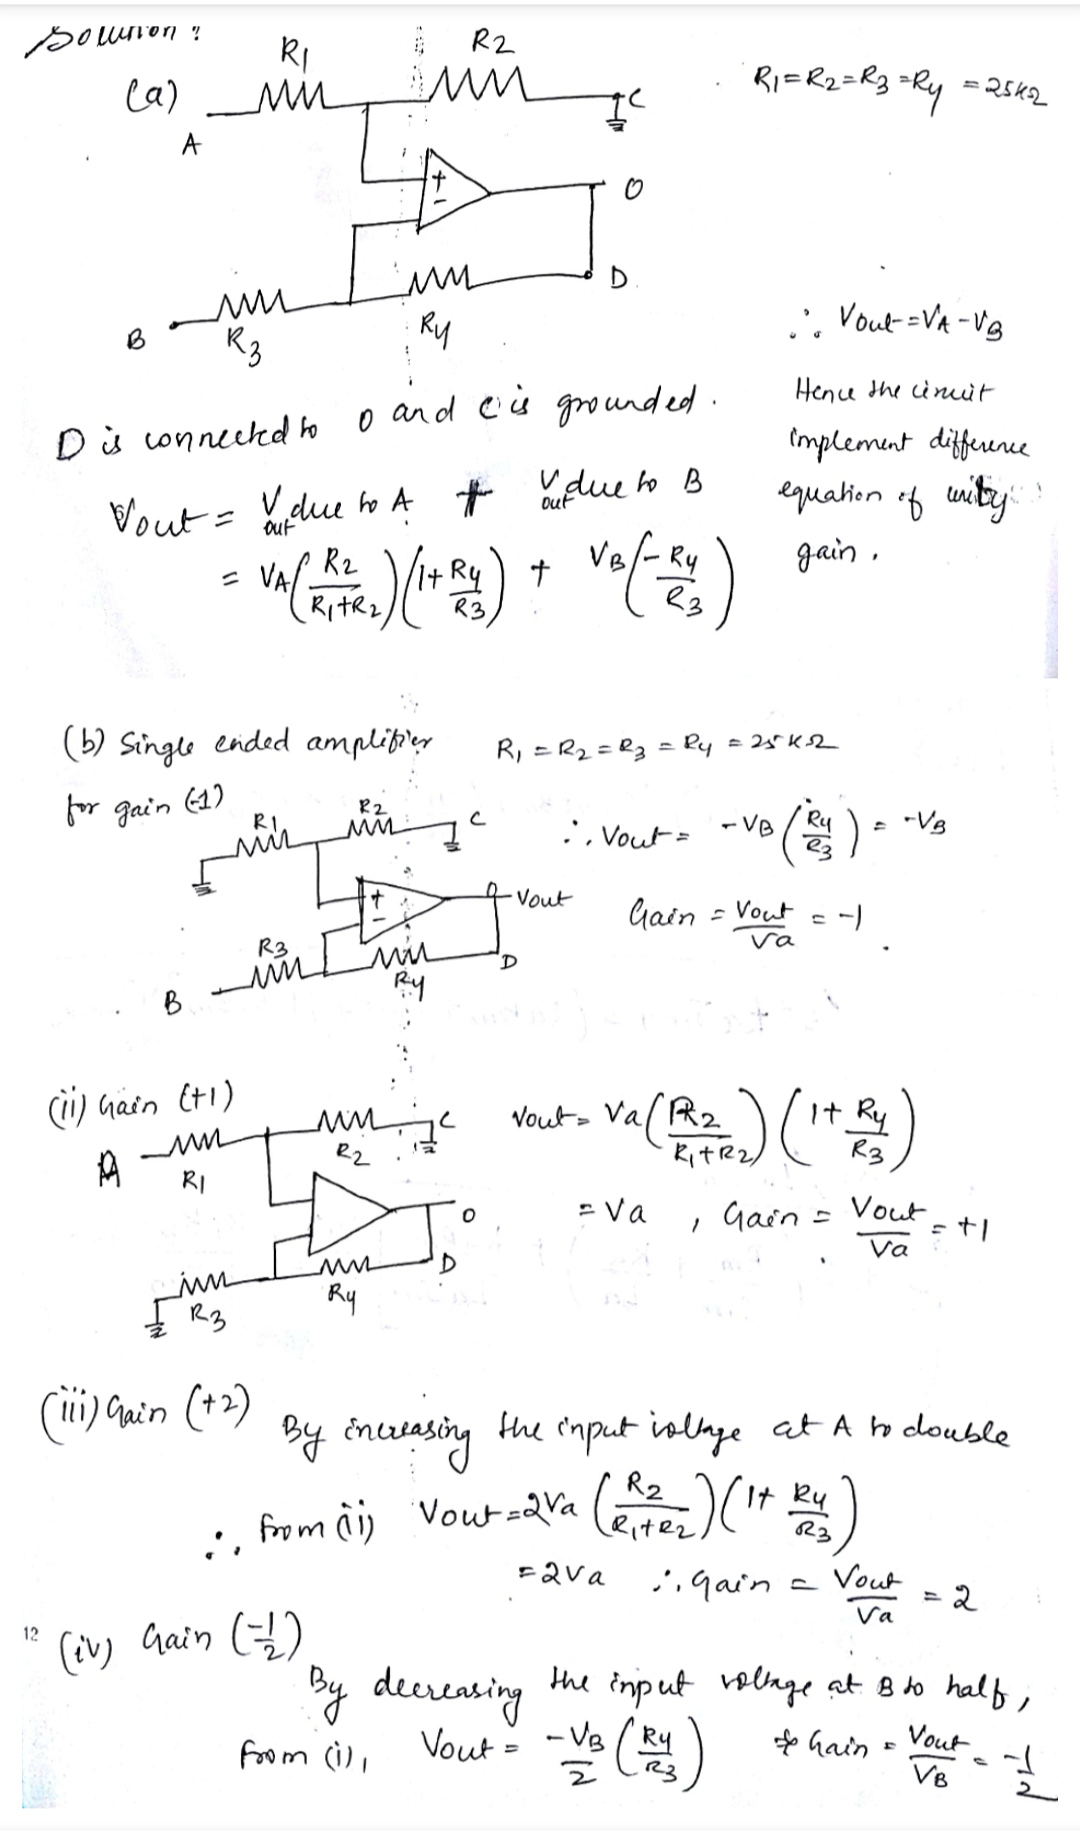 Solution:
(a)
R1
R2
R1=R2=R3=Ry = 25KΩ
A
C
+
-
O
D
B
R3
Ry
∴ Vout=VA-VB
D is connected to O and C is grounded.
Hence the circuit
implement difference
equation of unity
gain.
Vout = Vout due to A + Vout due to B
= VA(R2/R1+R2)(1+Ry/R3) + VB(-Ry/R3)
(b) Single ended amplifier
R1 = R2 = R3 = Ry = 25KΩ
for gain (-1)
R1
R2
C
∴ Vout = -VB (Ry/R3) = -VB
+
-
O
Vout
Gain = Vout/Va = -1
R3
Ry
D
B
(ii) Gain (+1)
A
R1
R2
C
Vout= Va(R2/R1+R2)(1+Ry/R3)
= Va , Gain = Vout/Va = +1
O
D
R3
Ry
(iii) Gain (+2)
By increasing the input voltage at A to double
∴, from (ii) Vout=2Va (R2/R1+R2)(1+Ry/R3)
=2Va ∴ gain = Vout/Va = 2
12
(iv) Gain (-1/2)
By decreasing the input voltage at B to half,
from (i), Vout = -VB/2 (Ry/R3) Gain = Vout/VB = -1/2